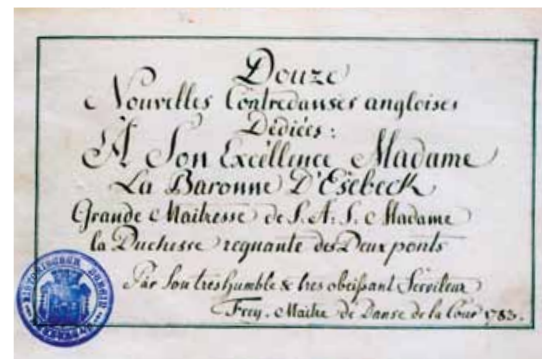 Douze
Nouvelles Contredanses angloises
Dediées:
À Son Excéllence Madame
La Baronne D'Esebeck
Grande Maitresse de S. A: S. Madame
la Duchesse regnante des Deux ponts
Par Son tres humble & tres obeißant Serviteur
Frey. Maitre de Danse de la Cour 1783.
HISTORISCHER VEREIN